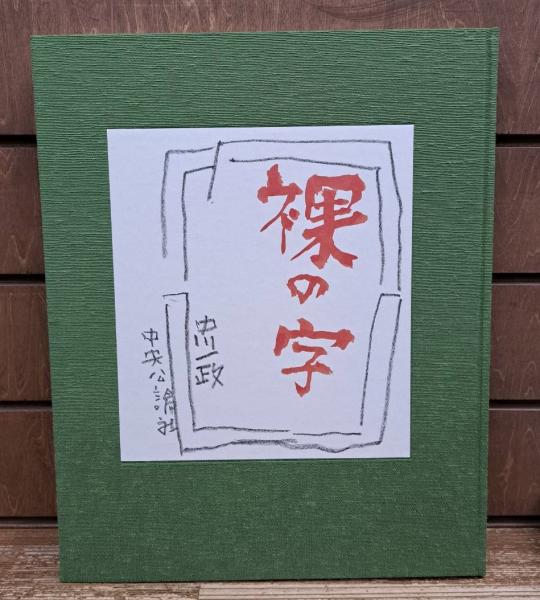 裸の字
中川一政
中央公論社